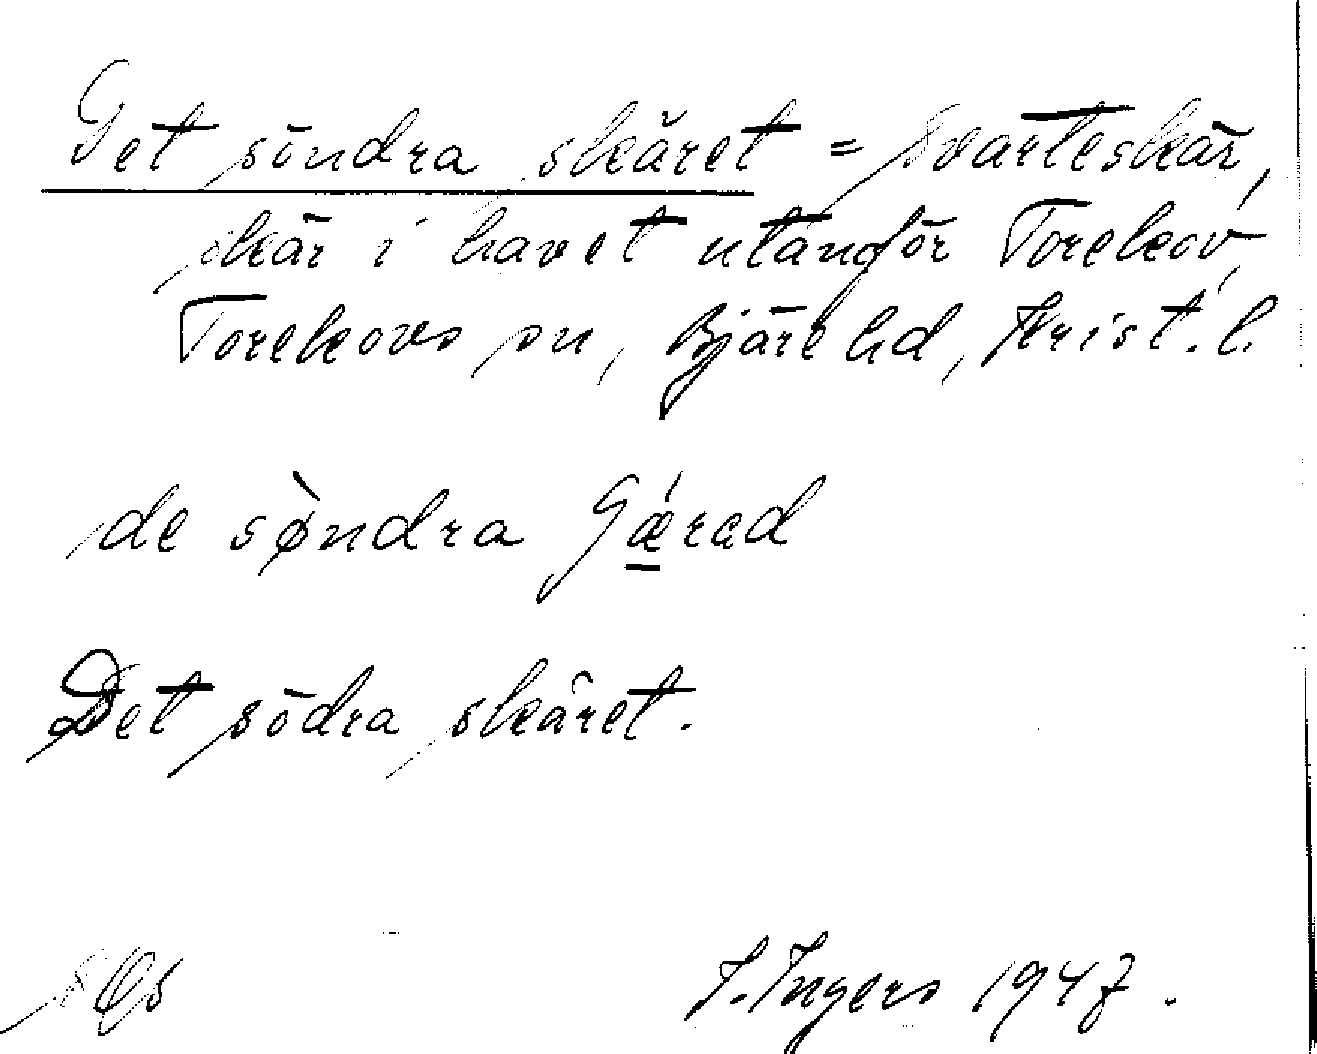 Det söndra skäret = Svarteskär,
skär i havet utanför Torekov,
Torekovs sn, Bjäre hd, Krist. l.
de søndra
Det södra skäret.
I. Ingers 1947.